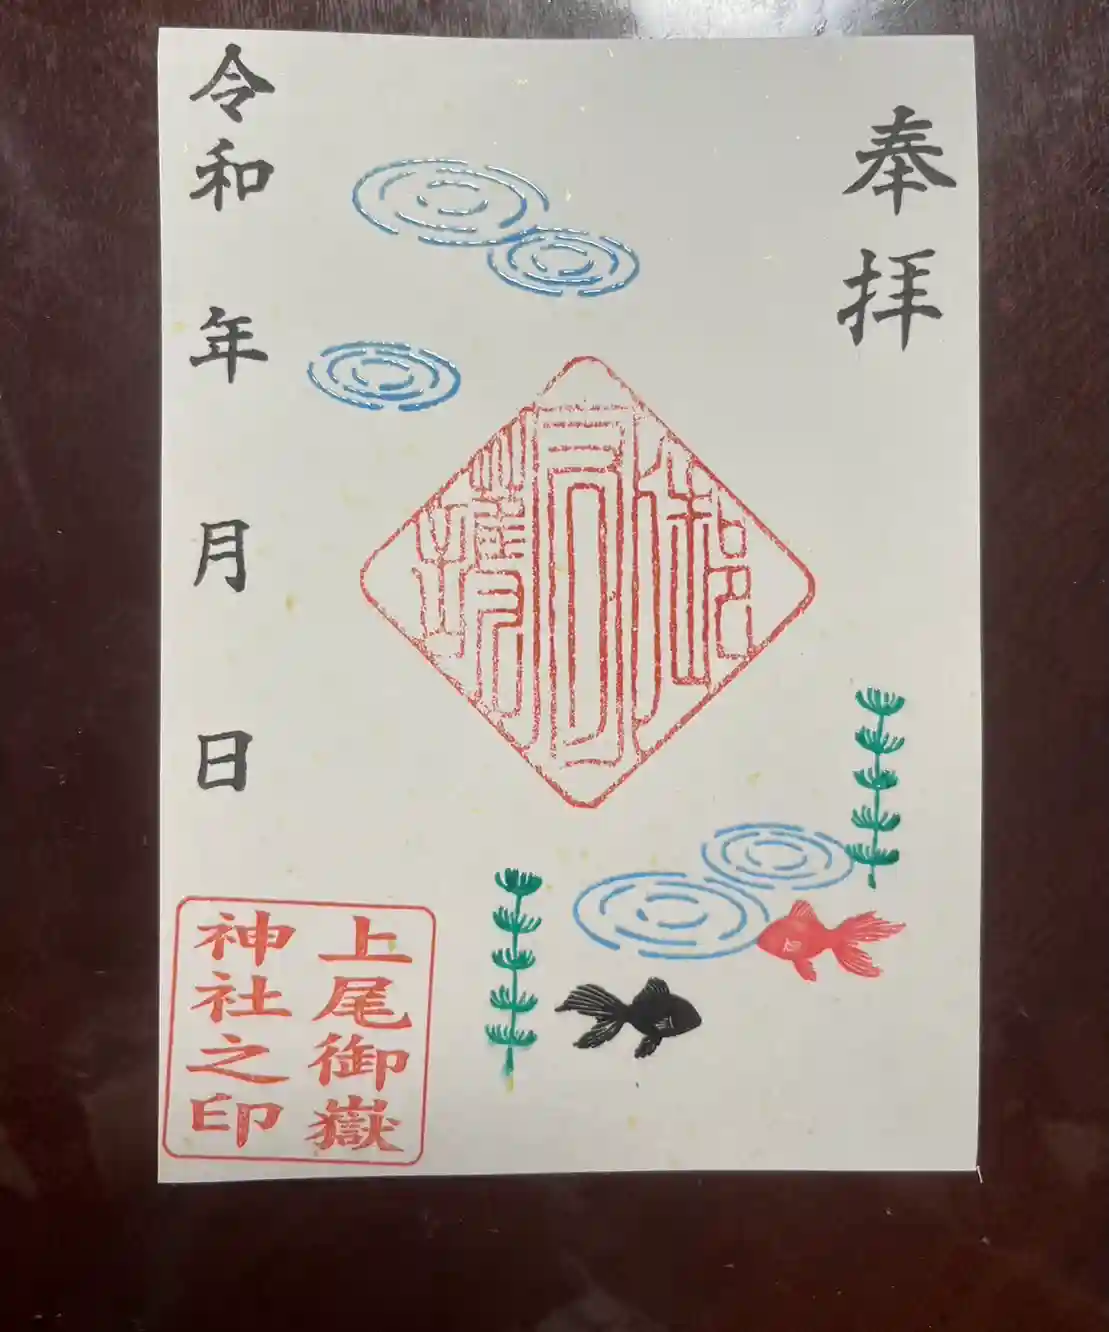 奉拝
令和 年 月 日
上尾御嶽
神社之印